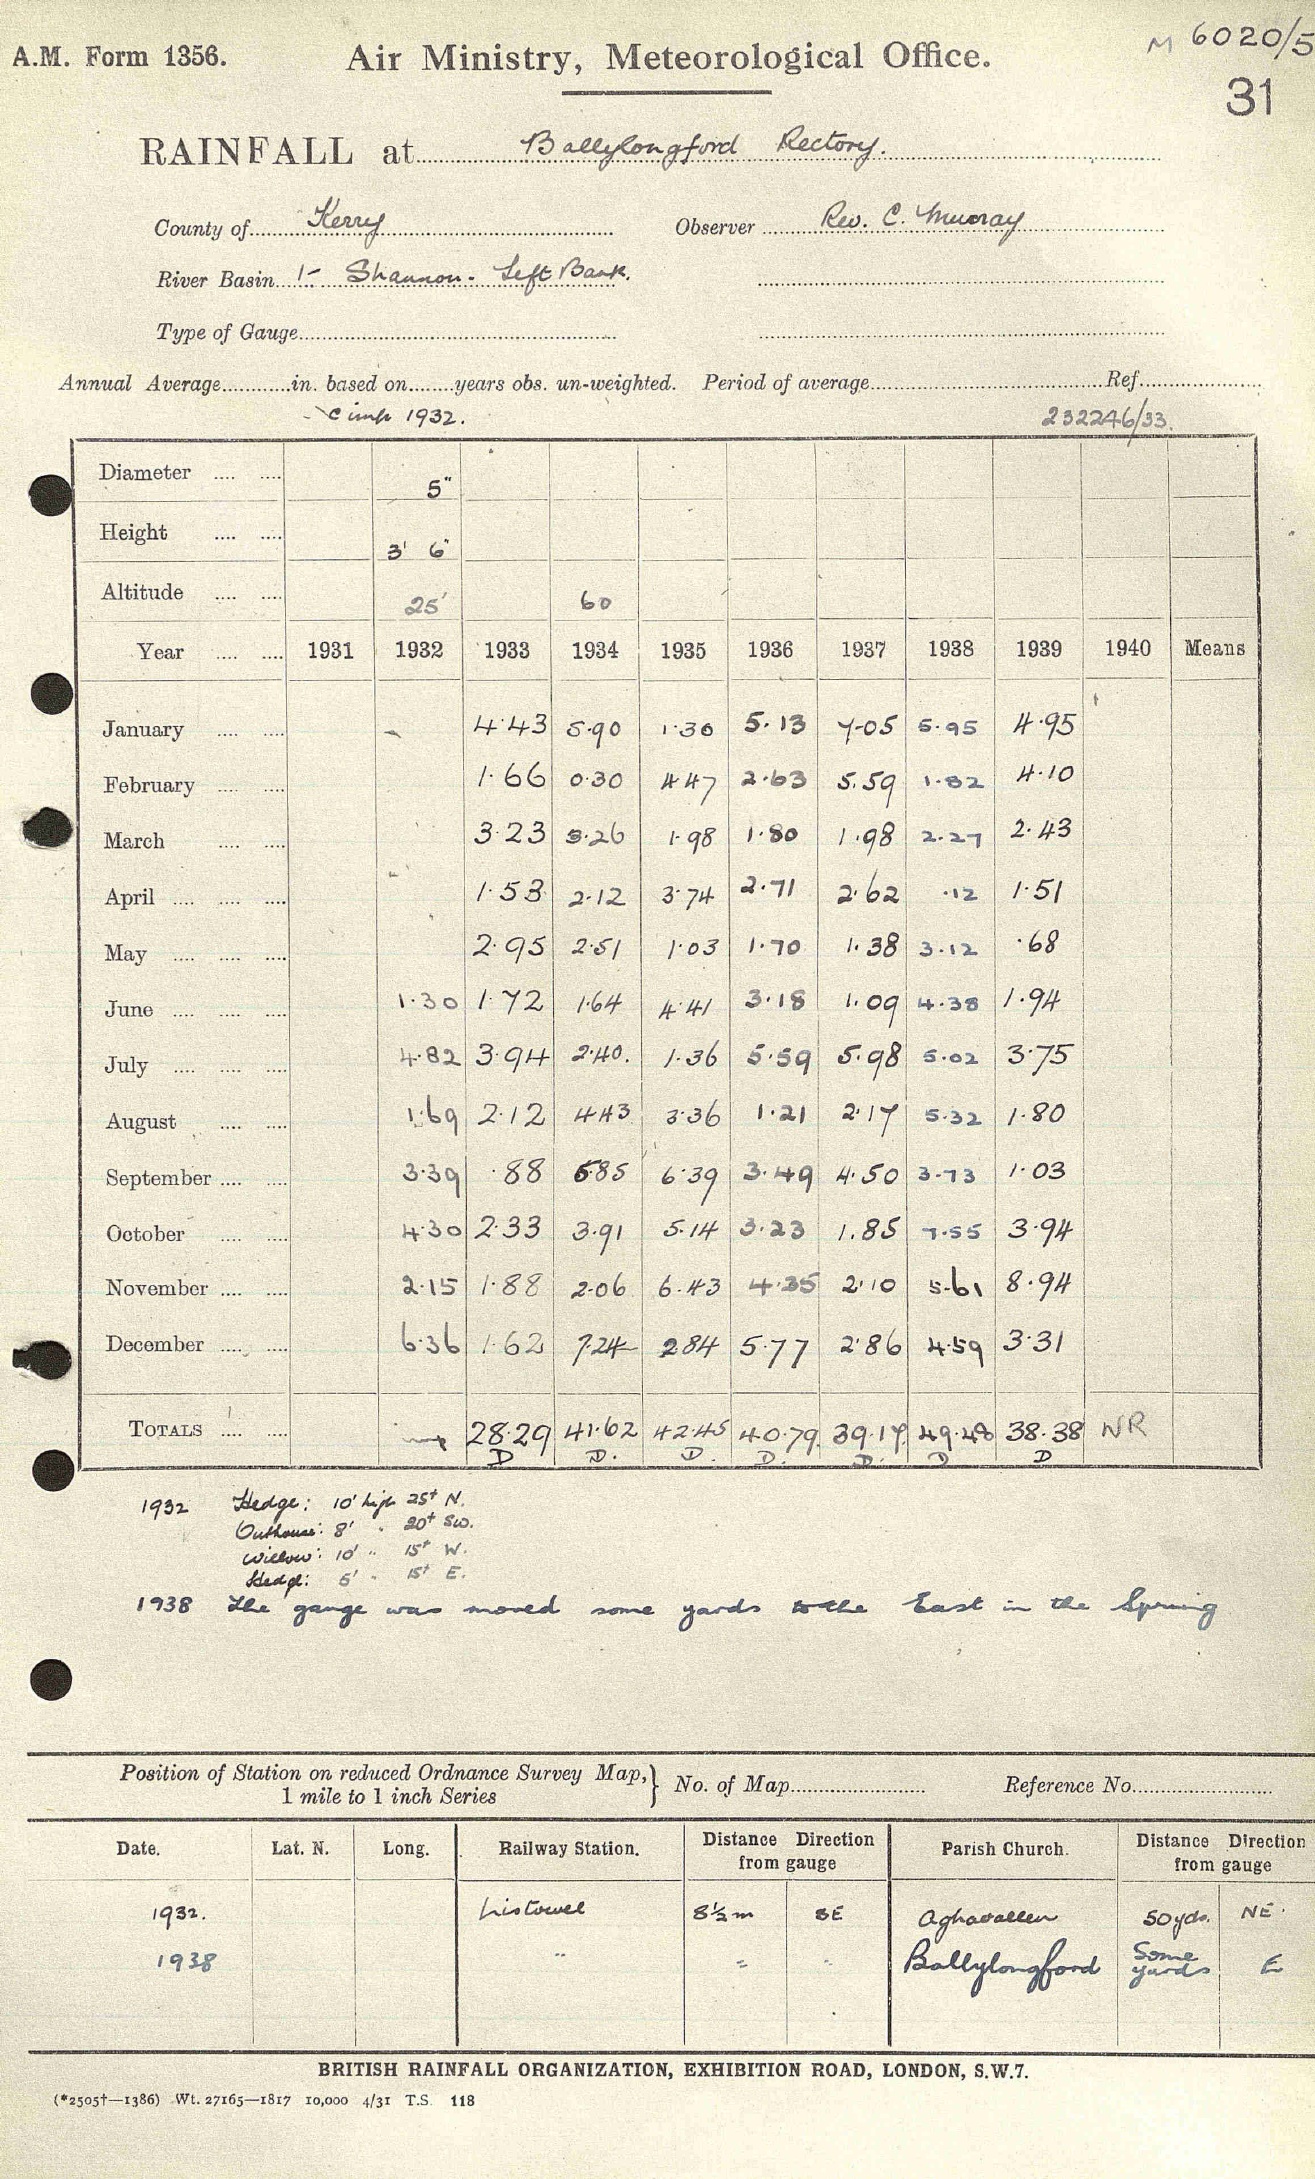 A.M. Form 1356. Air Ministry, Meteorological Office. M 6020/5
31
RAINFALL at Ballylongford Rectory.
County of Kerry Observer Rev. C. Murray
River Basin 1- Shannon - Left Bank.
Type of Gauge
Annual Average in. based on years obs. un-weighted. Period of average Ref
1932. 232246/33.
Diameter 5"
Height 3' 6"
Altitude 25' 60
Year 1931 1932 1933 1934 1935 1936 1937 1938 1939 1940 Means
January 4.43 5.90 1.30 5.13 7.05 5.95 4.95
February 1.66 0.30 4.47 2.63 5.59 1.82 4.10
March 3.23 3.26 1.98 1.80 1.98 2.27 2.43
April 1.53 2.12 3.74 2.71 2.62 .12 1.51
May 2.95 2.51 1.03 1.70 1.38 3.12 .68
June 1.30 1.72 1.64 4.41 3.18 1.09 4.38 1.94
July 4.82 3.94 2.40. 1.36 5.59 5.98 5.02 3.75
August 1.69 2.12 4.43 3.36 1.21 2.17 5.32 1.80
September 3.39 .88 5.85 6.39 3.49 4.50 3.73 1.03
October 4.30 2.33 3.91 5.14 3.23 1.85 7.55 3.94
November 2.15 1.88 2.06 6.43 4.35 2.10 5.61 8.94
December 6.36 1.62 7.24 2.84 5.77 2.86 4.59 3.31
TOTALS 28.29 41.62 42.45 40.79 39.17 49.48 38.38 NR
D D. D. D. D. D D
1932 Hedge: 10' high 25† N.
Outhouse: 8' " 20† SW.
Willow: 10' " 15† W.
Hedge: 5' " 15† E.
1938 The gauge was moved some yards to the East in the Spring
Position of Station on reduced Ordnance Survey Map, } No. of Map Reference No.
1 mile to 1 inch Series
Date. Lat. N. Long. Railway Station. Distance Direction from gauge Parish Church. Distance Direction from gauge
1932. Listowel 8½m SE Aghavallen 50yds. NE.
1938 " " " Ballylongford Some yards E
BRITISH RAINFALL ORGANIZATION, EXHIBITION ROAD, LONDON, S.W.7.
(*2505†—1386) Wt. 27165—1817 10,000 4/31 T.S. 118